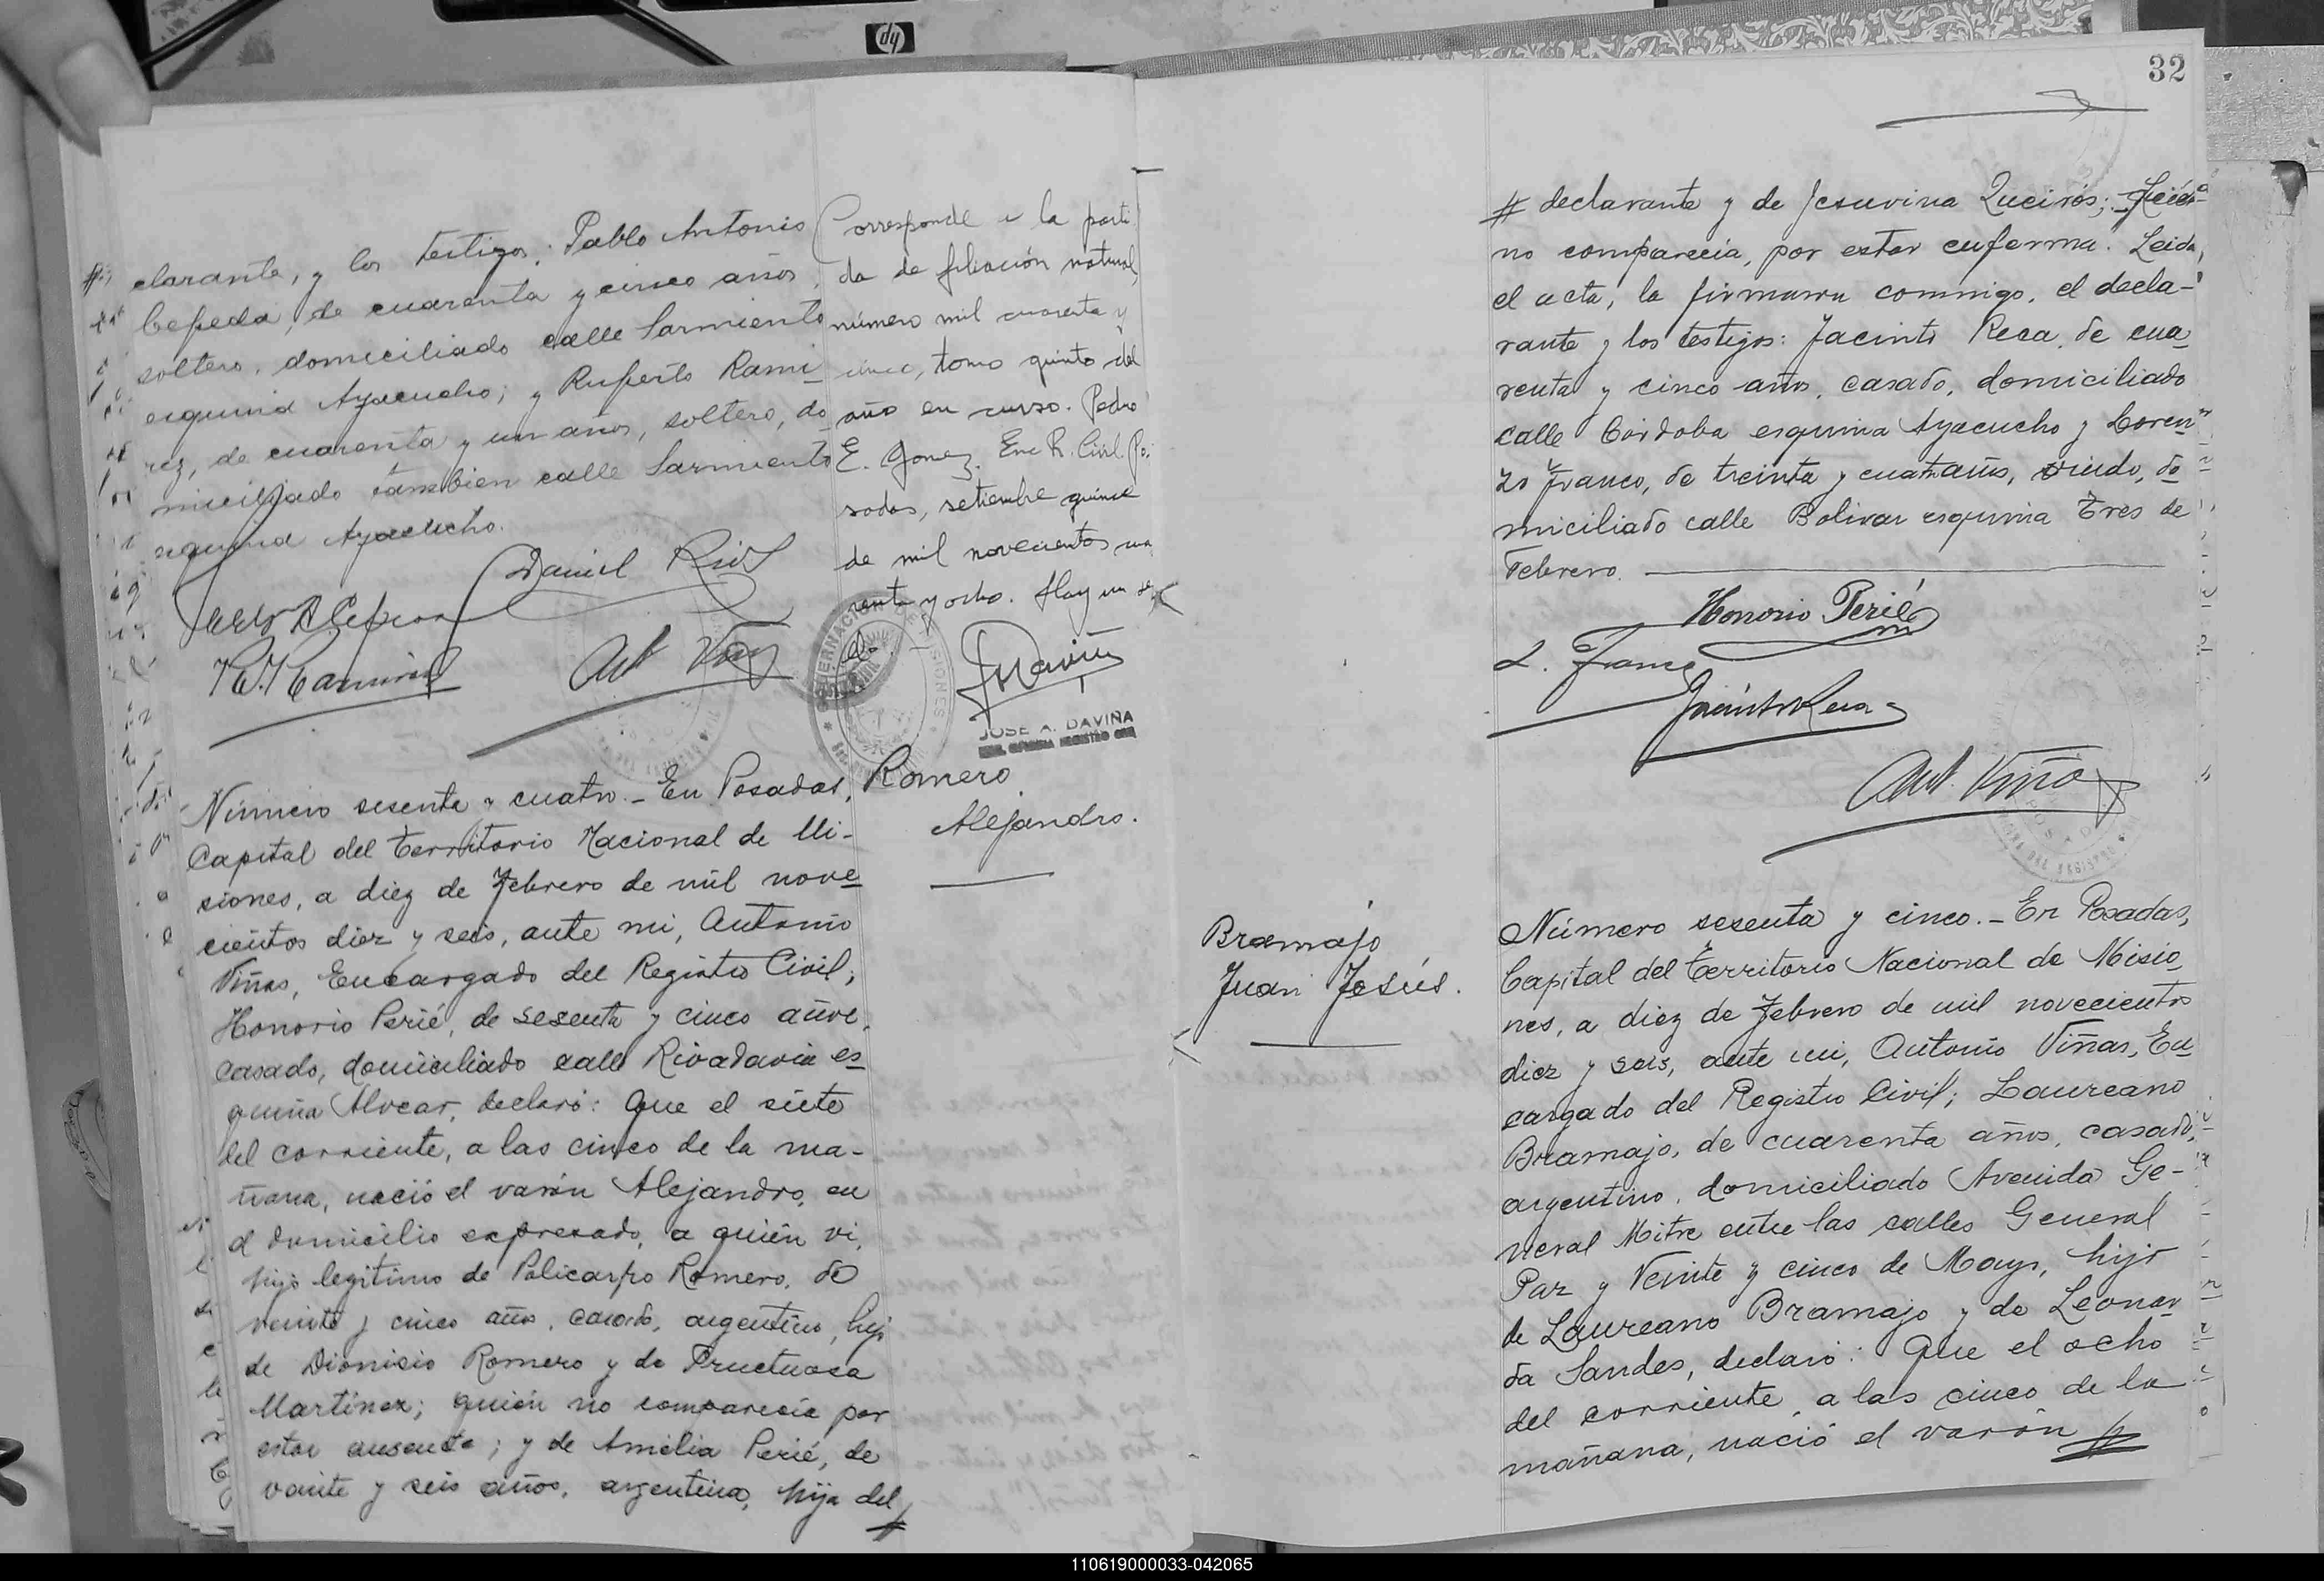 hp
clarante, y los testigos: Pablo Antonio
Cepeda, de cuarenta y cinco años,
soltero, domiciliado calle Sarmiento
esquina Ayacucho; y Ruperto Rami
rez, de cuarenta y un años, soltero, do
miciliado tambien calle Sarmiento
esquina Ayacucho.
Daniel Rios
Ant Viñas
Corresponde a la parti
da de filiación natural,
número mil cuarenta y
cinco, tomo quinto del
año en curso. Pedro
E. Gomez. Enc R. Civil. Po
sadas, setiembre quince
de mil novecientos cua
renta y ocho. Hay un
JOSE A. DAVIÑA
Romero
Alejandro.
Número sesenta y cuatro.- En Posadas,
Capital del Territorio Nacional de Mi-
siones, a diez de Febrero de mil nove
cientos diez y seis, ante mi, Antonio
Viñas, Encargado del Registro Civil;
Honorio Perié, de sesenta y cinco años,
casado, domiciliado calle Rivadavia es
quina Alvear, declaró: Que el siete
del corriente, a las cinco de la ma-
ñana, nació el varón Alejandro, en
el domicilio expresado, a quién vi,
hijo legitimo de Policarpo Romero, de
veinte y cinco años, casado, argentino, hijo
de Dionisio Romero y de Fructuosa
Martínez; quién no comparecia por
estar ausente; y de Amelia Perié, de
veinte y seis años, argentina, hija del #
32
# declarante y de Jesuvina Queirós;
no comparecia, por estar enferma. Leida
el acta, la firmaron conmigo, el decla-
rante y los testigos: Jacinto Reca, de cua
renta y cinco años, casado, domiciliado
calle Córdoba esquina Ayacucho y Loren
zo Franco, de treinta y cuatro años, viudo, do
miciliado calle Bolivar esquina Tres de
Febrero.
Honorio Perié
L. Franco
Jacinto Reca
Ant. Viñas
Bramajo
Juan Jesús.
Número sesenta y cinco.- En Posadas,
Capital del Territorio Nacional de Misio
nes, a diez de Febrero de mil novecientos
diez y seis, ante mi, Antonio Viñas, En
cargado del Registro Civil; Laureano
Bramajo, de cuarenta años, casado,
argentino, domiciliado Avenida Ge-
neral Mitre entre las calles General
Paz y Veinte y cinco de Mayo, hijo
de Laureano Bramajo y de Leonar
da Sandes, declaró: Que el ocho
del corriente, a las cinco de la
mañana, nació el varón #
110619000033-042065